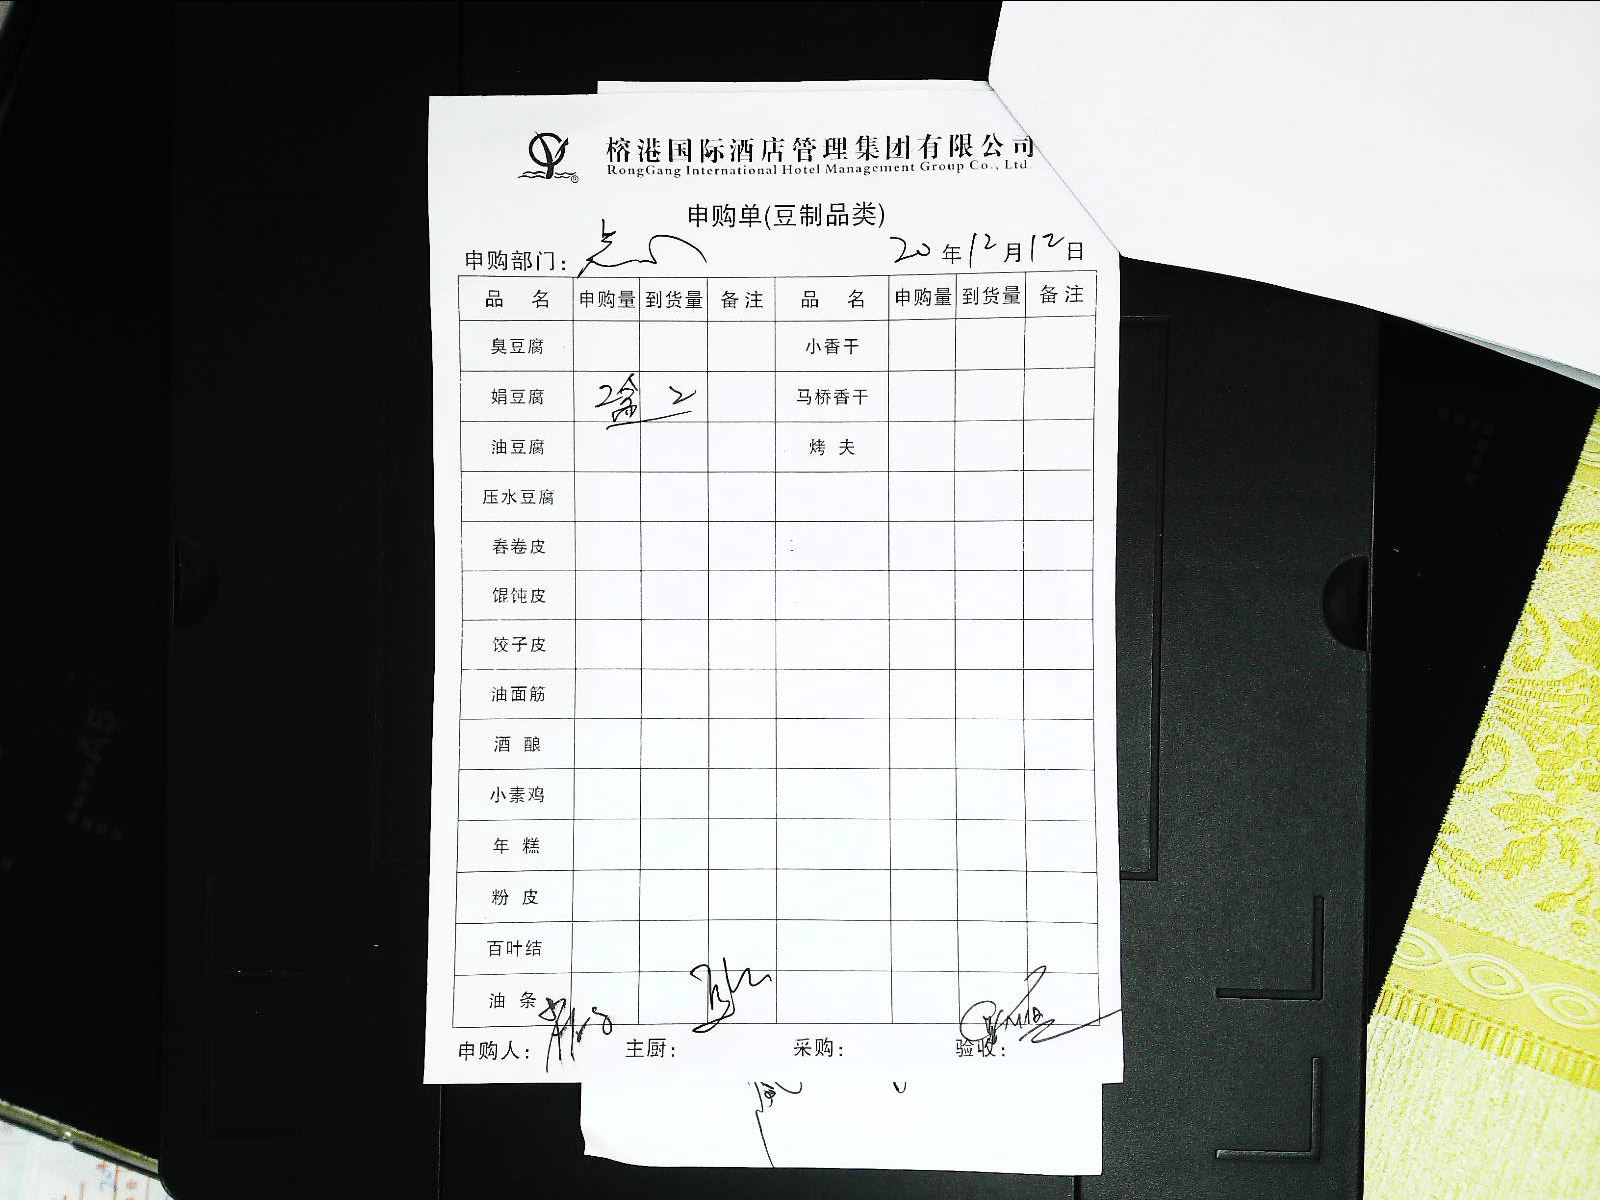 榕港国际酒店管理集团有限公司
RongGang International Hotel Management Group Co., Ltd.
申购单(豆制品类)
申购部门: 20年12月12日
品 名 申购量 到货量 备注 品 名 申购量 到货量 备注
臭豆腐 小香干
娟豆腐 2盒 2 马桥香干
油豆腐 烤 夫
压水豆腐
春卷皮
馄饨皮
饺子皮
油面筋
酒 酿
小素鸡
年 糕
粉 皮
百叶结
油 条
申购人: 主厨: 采购: 验收: